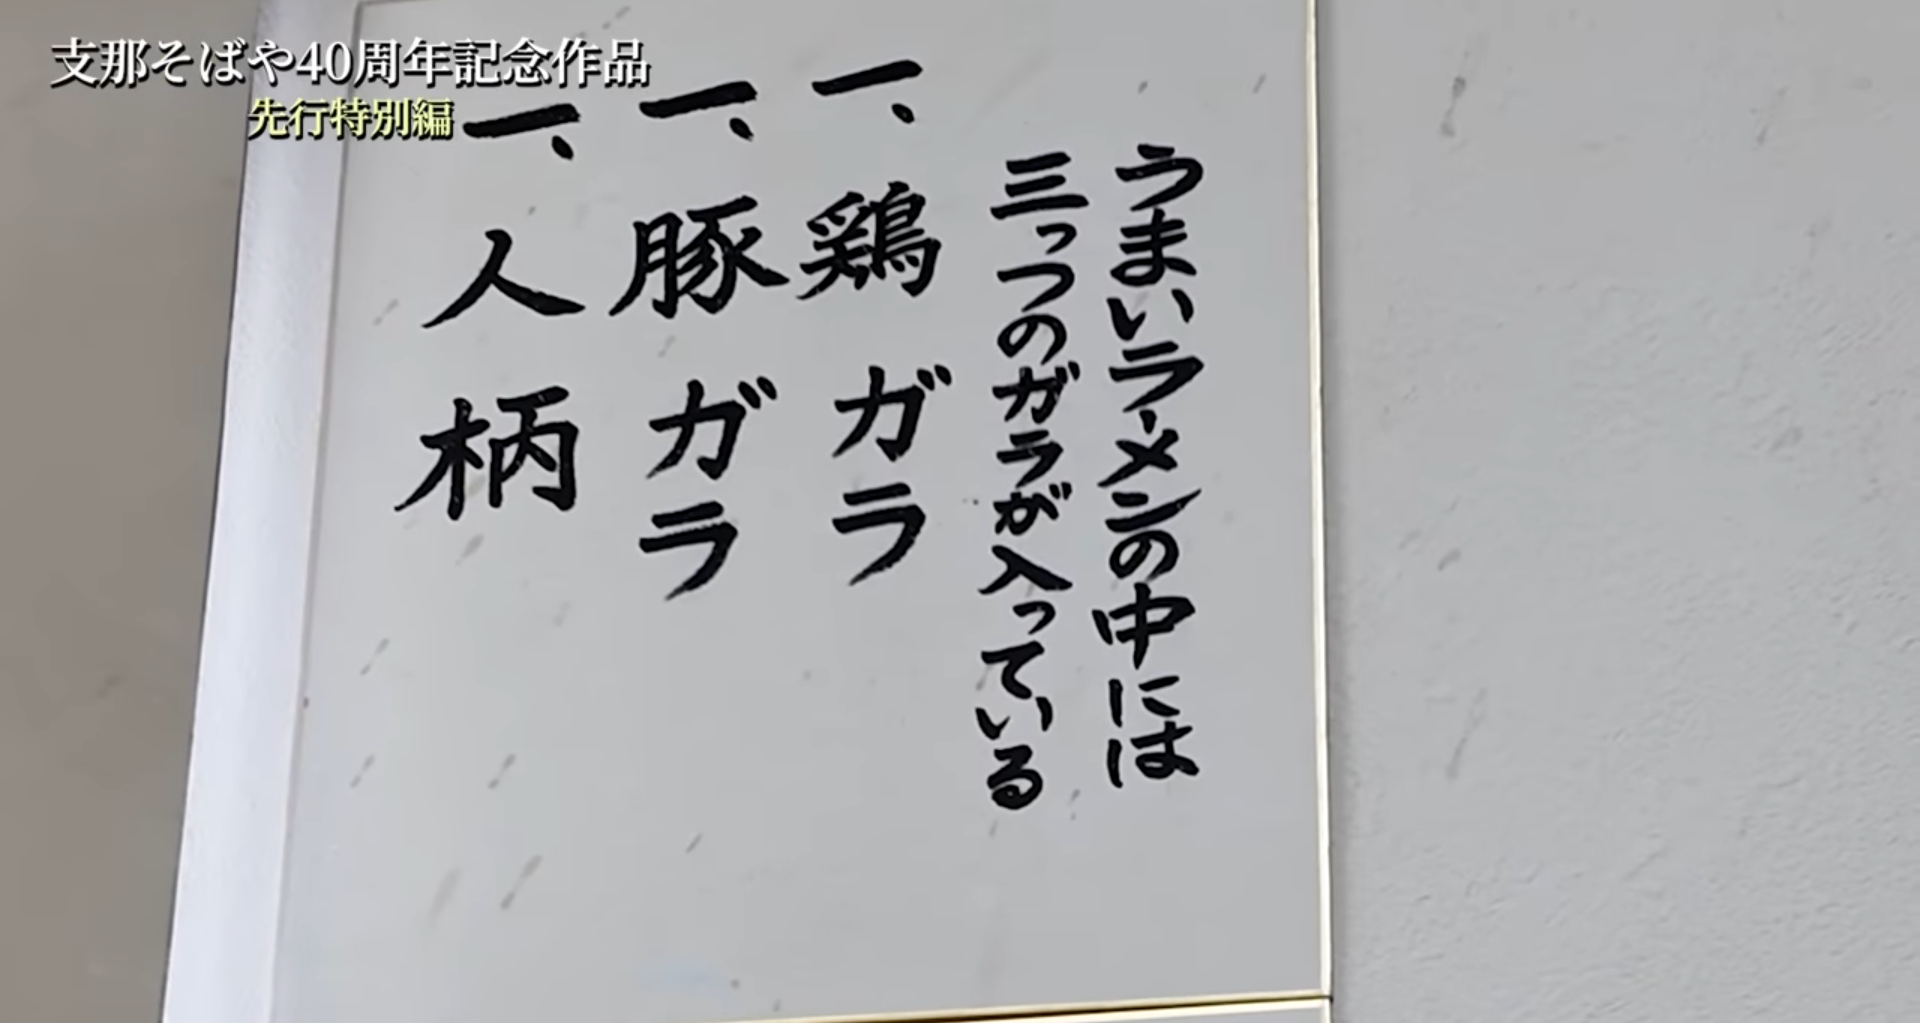 支那そばや40周年記念作品
先行特別編
うまいラーメンの中には
三っつのガラが入っている
一、鶏ガラ
一、豚ガラ
一、人柄